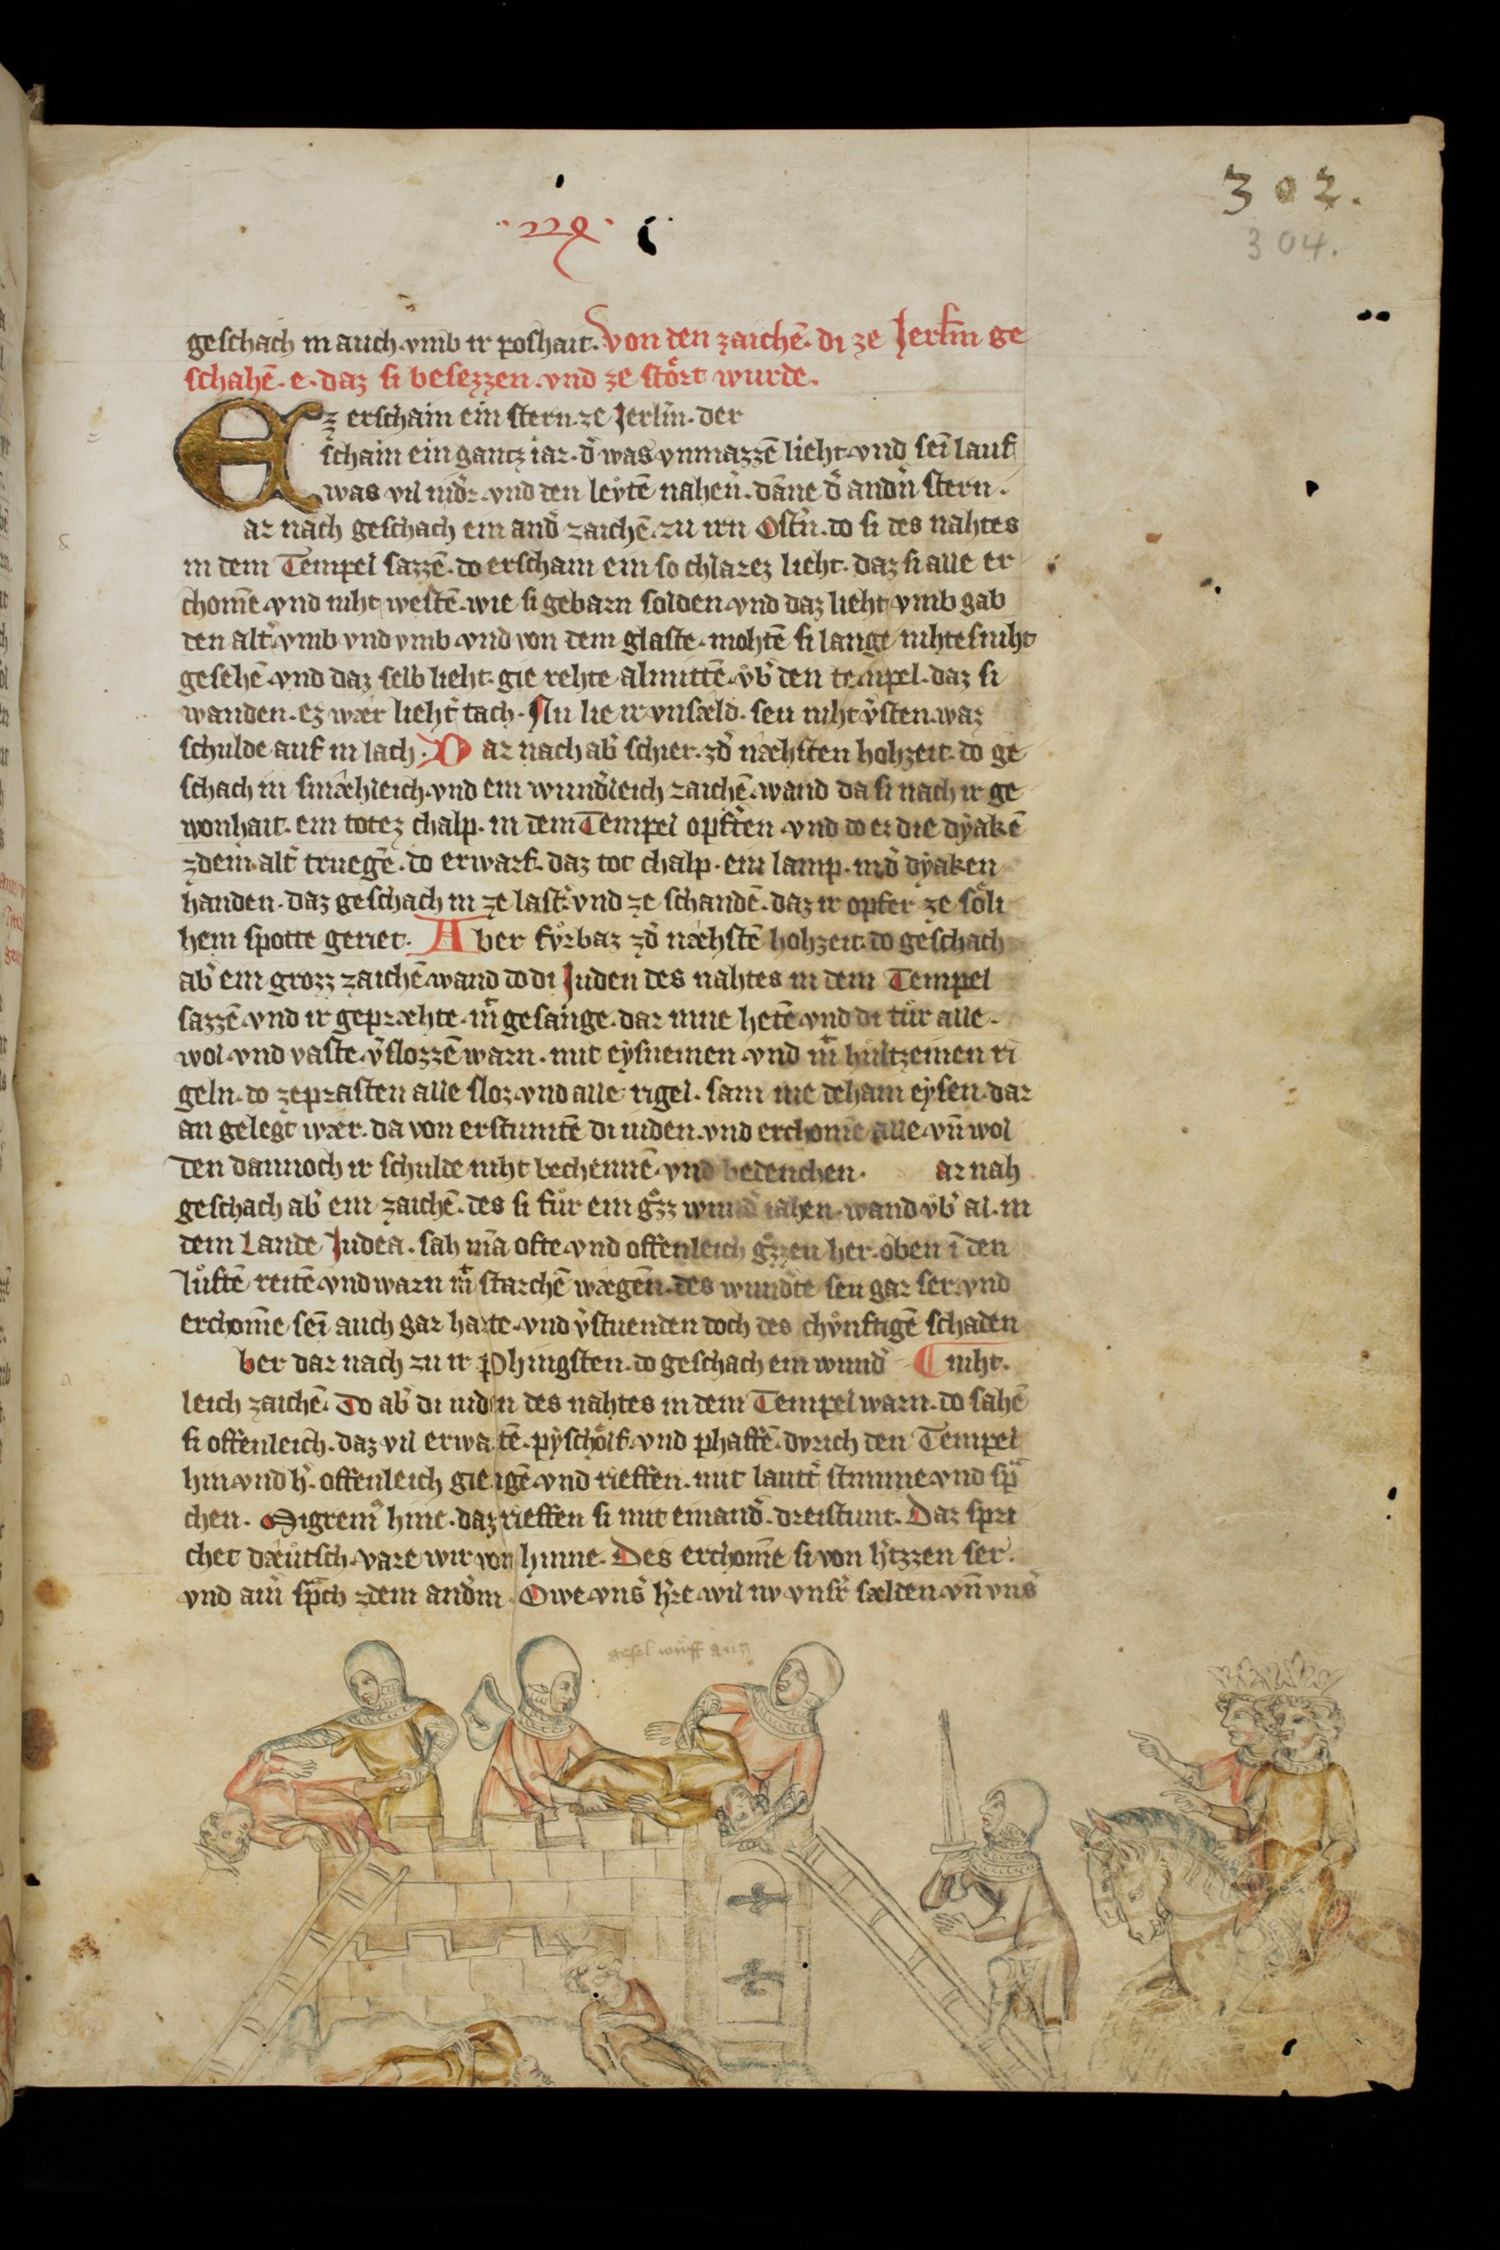 302.
304.
geschach in auch. vmb ir poshait. Von den zaichē. di ze Jerlm̄ ge
schahē. e. daz si besezzen. vnd ze stôrt wurde.
Ez erschain ein stern. ze Jerlm̄. der
schain ein gantz iar. d̾ was vnmazzē lieht. vnd sei lauf
was vil nid̾r. vnd den leỳtē nahen̾. dāne d̾ andn̾ stern.
ar nach geschach ein and̾ zaichē. zu irn Ostn̾. do si des nahtes
in dem Tempel sazzē. do erschain ein so chlarez lieht. daz si alle er
chom̄e. vnd niht westē. wie si gebarn solden. vnd daz lieht vmb gab
den alt̾ vmb vnd vmb. vnd von dem glaste. mohtē si lange nihtesniht
gesehē. vnd daz selb lieht. gie rehte almittē. vb̾ den tempel. daz si
wanden. ez wær liehť tach. Nu lie ir vnsæld. seu niht v̾sten. waz
schulde auf in lach. D ar nach ab̾ schier. zd̾ næhsten hohzeit. do ge
schach in smæhleich. vnd ein wund̾leich zaichē. wand da si nach ir ge
wonhait. ein totez chalp. in dem Tempel opften. vnd do ez die dẏakē
zdem alt̾ truegē. do erwarf. daz tot chalp. ein lamp. in d̾ dẏaken
handen. daz geschach in ze last̾ vnd ze schandē. daz ir opfer ze sôli
hem spotte geriet. Aber fv̊rbaz zd̾ næhstē hohzeit. do geschach
ab̾ ein grozz zaichē. wand do di Juden des nahtes in dem Tempel
sazzē. vnd ir gepræhte. mͭ gesange. dar inne hetē. vnd di tu̇r alle.
wol. vnd vaste. v̾slozzē warn. mit eẏsneinen. vnd mͭ hultzeinen ri
geln. do zeprasten alle sloz. vnd alle rigel. sam nie dehain eẏsen. dar
an gelegt wær. da von erstumtē di iuden. vnd erchom̄e alle. vn̄ wol
den dannoch ir schulde niht bechennē. vnd bedenchen. ar nah
geschach ab̾ ein zaichē. des si fu̇r ein gͦzz wund̾ iahen. wand vb̾ al. in
dem Lande Judea. sah mā ofte. vnd offenleich gͦzzen her. oben ī den
lu̇ftē reitē. vnd warn mͭ starchē wægen. des wund̾te seu gar ser. vnd
erchom̄e seī auch gar harte. vnd v̾stuenden doch des chv̊nftigē schaden
ber dar nach zu ir Phingsten. do geschach ein wund̾ niht.
leich zaichē. Do ab̾ di iuden des nahtes in dem Tempel warn. do sahē
si offenleich. daz vil erwa tē. pẏschôlf. vnd phaffē. dvrich den Tempel
hin. vnd h̾. offenleich giengē. vnd rieffen. mit lautt̾ stimme. vnd spͣ
chen. Migrem̾ hinc. daz rieffen si mit einand̾. dreistunt. Daz spri
chet dæu̇tsch. vare wir von hinne. Des erchom̄e si von h̾tzzen ser.
vnd ain̾ spͣch zdem and̾m. Owe. vns̾ h̾re. wil nv vnsr̾ sælden. vn̄ vns̾
gesel wirff auz